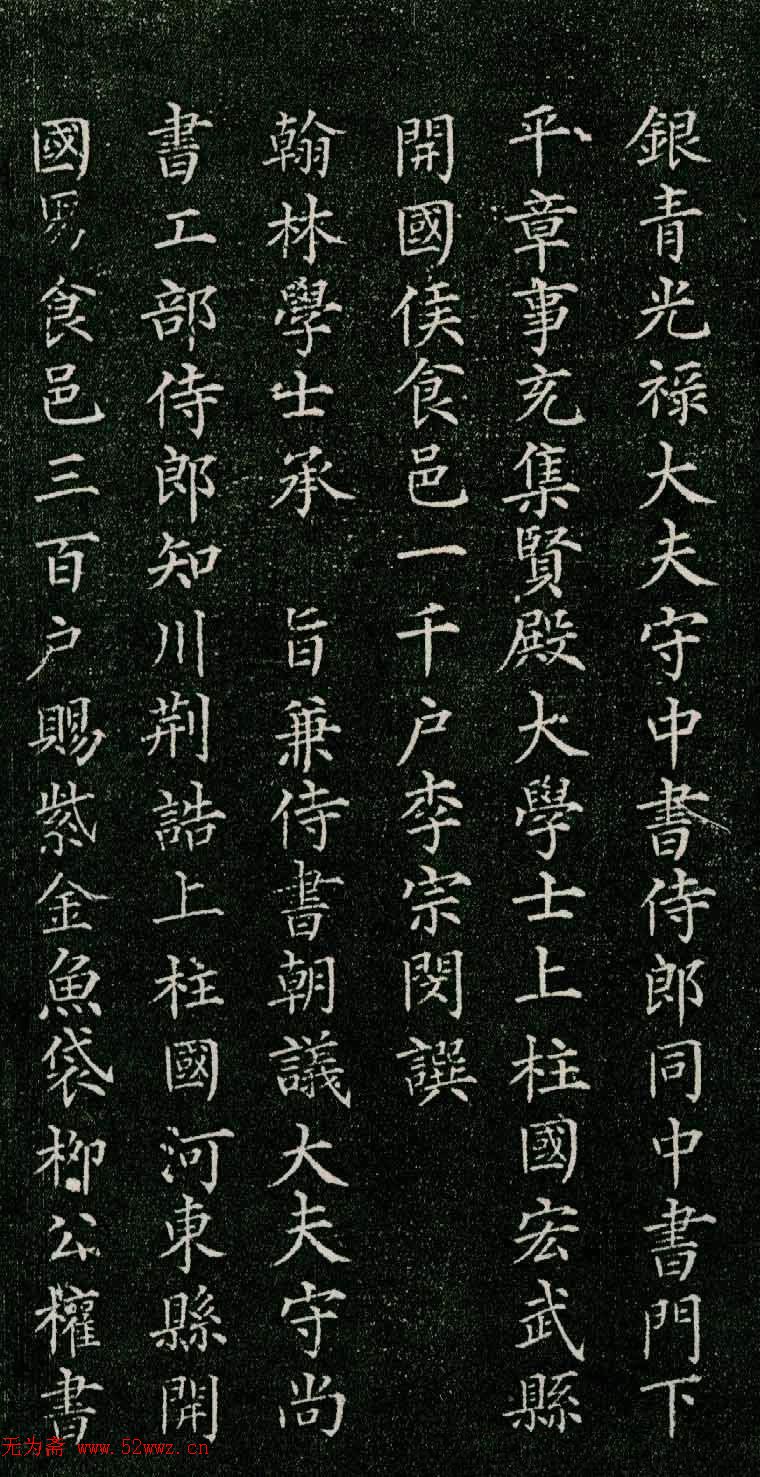 銀青光祿大夫守中書侍郎同中書門下
平章事充集賢殿大學士上柱國宏武縣
開國侯食邑一千户李宗閔譔
翰林學士承 旨兼侍書朝議大夫守尚
書工部侍郎知川荆誥上柱國河東縣開
國男食邑三百户賜紫金魚袋柳公權書
无为斋 www.52wwz.cn